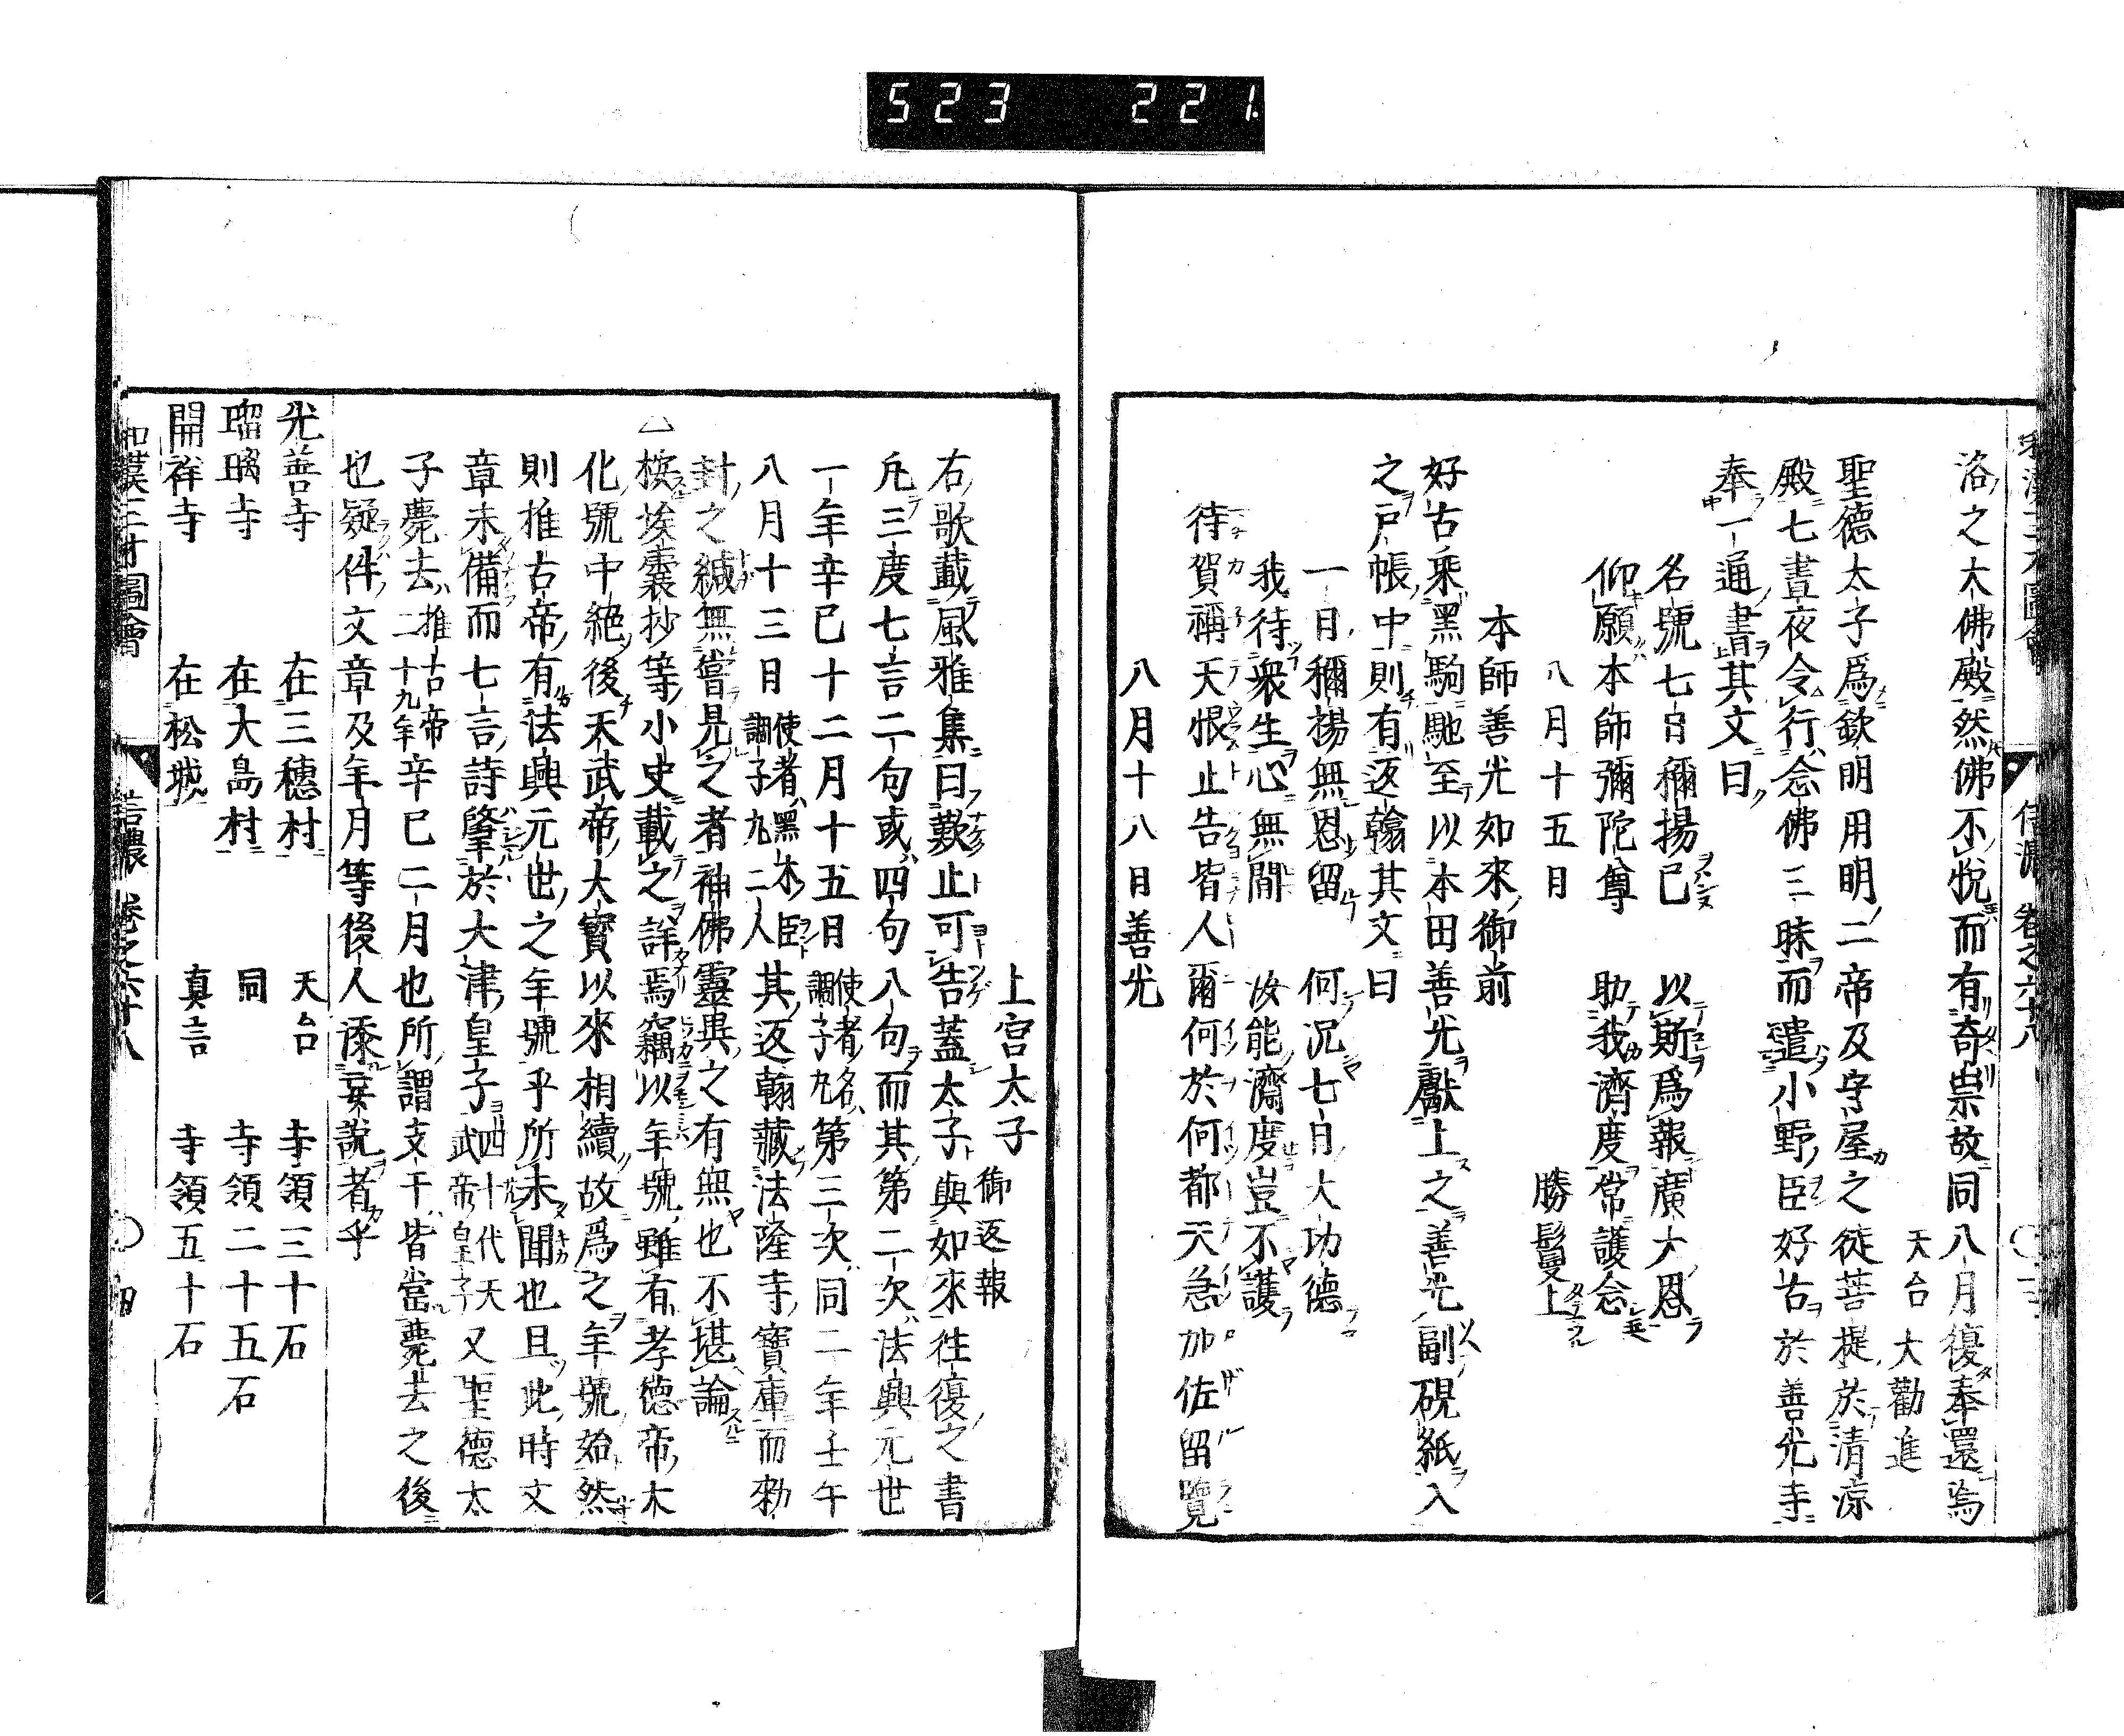 523 221.
和漢三才圖會 信濃 卷之六十八
洛之大佛殿然佛不悅而有奇祟故同八月復奉還焉
天台 大勸進
聖德太子爲欽明用明二帝及守屋之徒菩提於清凉
殿七晝夜令行念佛三昧而遣小野臣好古於善光寺
奉一通書其文曰
名號七日稱揚已 以斯爲報廣大恩
仰願本師彌陀尊 助我濟度常護念
八月十五日 勝鬘上
本師善光如來御前
好古乘黑駒馳至以本田善光獻上之善光副硯紙入
之戸帳中則有返翰其文曰
一日稱揚無恩留 何況七日大功德
我待衆生心無間 汝能濟度豈不護
待賀稱天恨止告皆人爾何於何都天急加佐留覽
八月十八日善光
上宮太子 御返報
右歌載風雅集曰歎止可告蓋太子與如來往復之書
凡三度七言二句或四句八句而其第二次法興元世
一年辛巳十二月十五日使者名調子丸第三次同二年壬午
八月十三日使者黑木臣調子丸二人其返翰藏法隆寺寶庫而勅
封之緘無嘗見之者神佛靈異之有無也不堪論
△按埃囊抄等小史載之詳焉竊以年號雖有孝德帝大
化號中絕後天武帝大寶以來相續故爲之年號始然
則推古帝有法興元世之年號乎所未聞也且此時文
章未備而七言詩肇於大津皇子四十代天武帝皇子又聖德太
子薨去推古帝二十九年辛巳二月也所謂支干皆當薨去之後
也疑件文章及年月等後人添妄說者乎
光善寺 在三穗村 天台 寺領三十石
瑠璃寺 在大島村 同 寺領二十五石
開祥寺 在松城 真言 寺領五十石
和漢三才圖會 信濃 卷之六十八 四